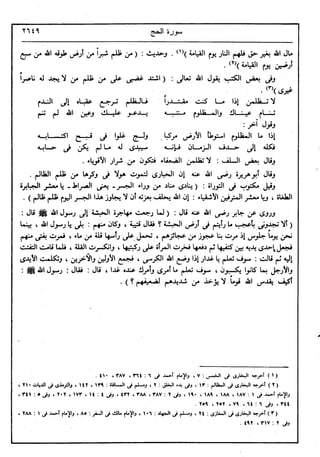 سورة الحج
٢٦٤٩
مال الله بغير حق فلهم النار يوم القيامة )(١). وحديث : ( من ظلم شبراً من أرض طوقه الله من سبع
أرضين يوم القيامة )(٢).
وفى بعض الكتب يقول الله تعالى : ( اشتد غضبى على من ظلم من لا يجد له ناصراً
غيرى )(٣).
لا تظلمن إذا ما كنت مقتدراً فالظلم ترجع عقباه إلى الندم
تنام عينك والمظلوم منتبه يدعو عليك وعين الله لم تنم
وقول آخر :
إذا ما الظلوم استوطأ الأرض مركبا ولج غلوا فى قبيح اكتسابه
فكله إلى صرف الزمان فإنه سيبدى له ما لم يكن فى حسابه
وقال بعض السلف : لا تظلمن الضعفاء فتكون من شرار الأقوياء .
وقال أبو هريرة رضى الله عنه إن الحبارى لتموت هزلا فى وكرها من ظلم الظالم .
وقيل مكتوب فى التوراة : ( ينادى مناد من وراء الجسر ـ يعنى الصراط ـ يا معشر الجبابرة
الطغاة ، ويا معشر المترفين الأشقياء : إن الله يحلف بعزته أن لا يجاوز هذا الجسر اليوم ظلم ظالم ) .
وروى عن جابر رضى الله عنه قال : ( لما رجعت مهاجرة الحبشة إلى رسول الله ﷺ قال :
( ألا تحدثونى بأعجب ما رأيتم فى أرض الحبشة ؟ فقال فتية ، وكان منهم : بلى يا رسول الله ، بينما
نحن يوماً جلوس إذ مرت بنا عجوز من عجائزهم ، تحمل على رأسها قلة من ماء ، فمرت بفتى منهم
فجعل إحدى يديه بين كتفيها ثم دفعها فخرت المرأة على ركبتيها ، وانكسرت القلة ، فلما قامت التفتت
إليه ثم قالت : سوف تعلم يا غدار إذا وضع الله الكرسى ، فجمع الأولين والآخرين ، وتكلمت الأيدى
والأرجل بما كانوا يكسبون ، سوف تعلم ما أمرى وأمرك عنده غدا ، قال : فقال : رسول الله ﷺ :
أكيف يقدس الله قوماً لا يؤخذ من شديدهم لضعيفهم ؟ ) .
(١) أخرجه البخارى فى الخمس : ٧ ، والإمام أحمد فى ٦ : ٣٦٤ ، ٣٨٧ ، ٤١٠ .
(٢) أخرجه البخارى فى المظالم : ١٣ ، وفى بدء الخلق : ٢ ، ومسلم فى المساقاة : ١٣٩ ، ١٤٢ ، والترمذى فى الديات ٢١ ،
والإمام أحمد فى ١ : ١٨٧ ، ١٨٨ ، ١٨٩ ، ١٩٠ ، وفى ٢ : ٣٨٧ ، ٣٨٨ ، ٤٣٢ ، وفى ٤ : ١٤ ، ١٧٣ ، ٢٠٢ ، وفى ٥ : ٣٤١ ،
٣٤٤ ، وفى ٦ : ٦٤ ، ٧٩ ، ٢٥٢ ، ٢٥٩ .
(٣) أخرجه البخارى فى المغازى : ٢٤ ، ومسلم فى الجهاد : ١٠٦ ، والإمام مالك فى السفر : ٨٥ ، والإمام أحمد فى ١ : ٢٨٨ ،
وفى ٢ : ٣١٧ ، ٤٩٢ .